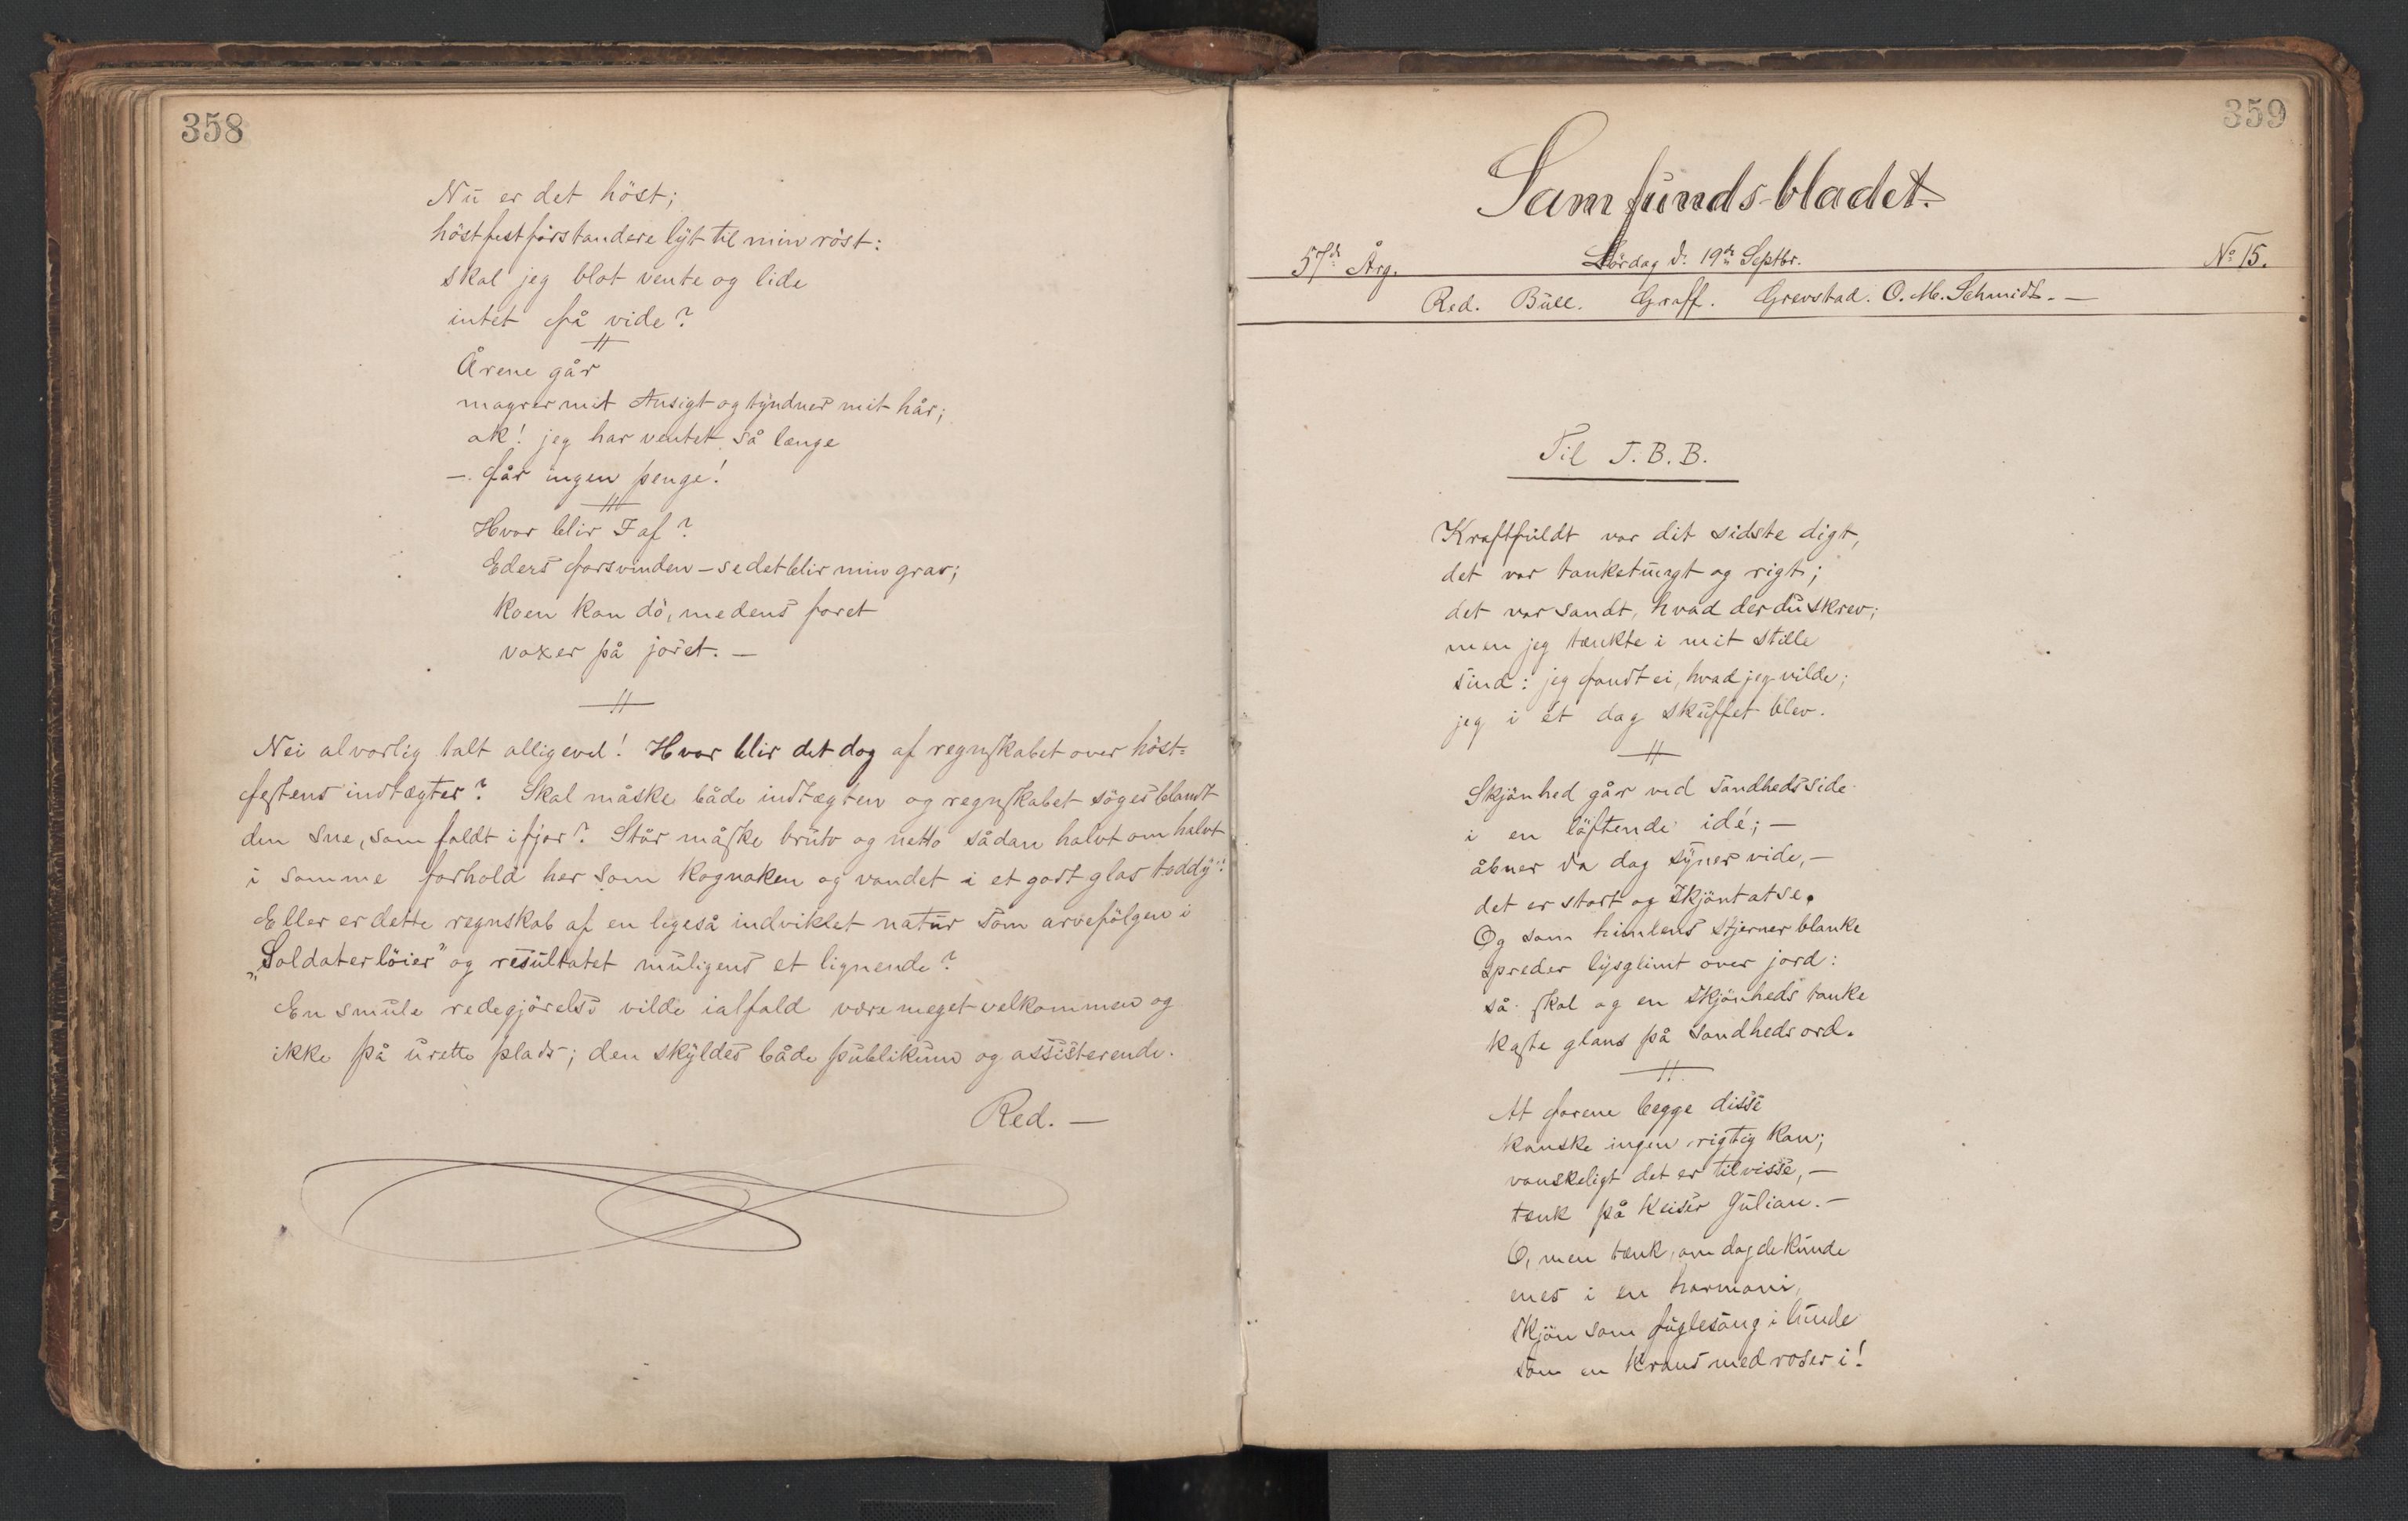 358
Nu er det höst;
höstfestforstandere lyt til min röst:
skal jeg blot vente og lide
intet få vide?
Årene går
magrer mit Ansigt og tyndner mit hår;
ak! jeg har ventet så længe
– får ingen penge!
Hvor blir I af?
Eders forsvinden – se det blir min grav;
Koen kan dö, medens foret
voxer på joret. –
Nei alvorlig talt alligevel! Hvor blir det dog af regnskabet over höst-
festens indtægter? Skal måske både indtægten og regnskabet söges blandt
den sne, som faldt ifjor? Står måske brutto og netto sådan halvt om halvt
i samme forhold her som kognaken og vandet i et godt glas toddy?
Eller er dette regnskab af en ligeså indviklet natur som arvefölgen i
„Soldaterlöier" og resultatet muligens et lignende?
En smule redegjörelse vilde ialfald være meget velkommen og
ikke på urette plads; den skyldes både publikum og assisterende.
Red. –
359
Samfunds-bladet.
57de Årg. Lördag d. 19de Septbr. No 15.
Red. Bull. Graff. Grevstad. O. M. Schmidt. –
Til J. B. B.
Kraftfuldt var dit sidste digt,
det var tanketungt og rigt;
det var sandt, hvad der du skrev;
men jeg tænkte i mit stille
sind: jeg fandt ei, hvad jeg vilde;
jeg i ét dog skuffet blev.
Skjönhed går ved Sandheds side
i en löftende idé; –
åbner da dog syner vide, –
det er stort og skjönt at se.
Og som himlens stjerner blanke
spreder lysglimt over jord:
så skal og en skjönheds tanke
kaste glans på sandheds ord.
At forene begge disse
kanske ingen rigtig kan;
vanskeligt det er tilvisse, –
tænk på Keiser Julian. –
O, men tænk, om dog de kunde
enes i en harmoni,
skjön som fuglesang i lunde
som en Krans med roser i!